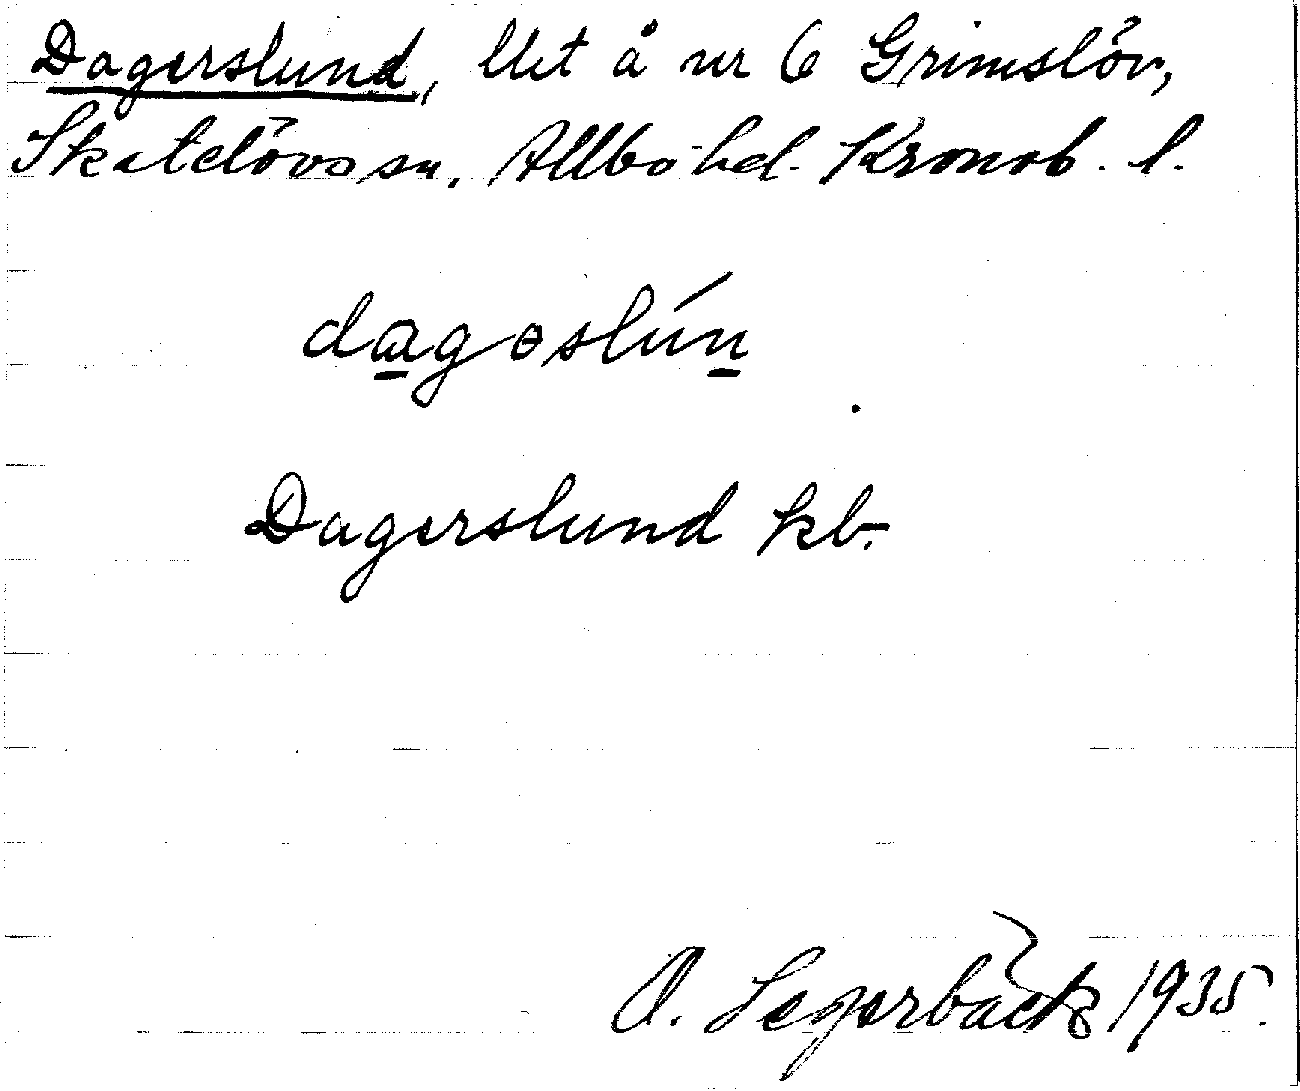 Dagerslund, llet å nr 6 Grimslöv,
Skatelövs sn. Allbo hd. Kronob. l.
dagoslún
Dagerslund kb.
O. Segerbäck 1935.